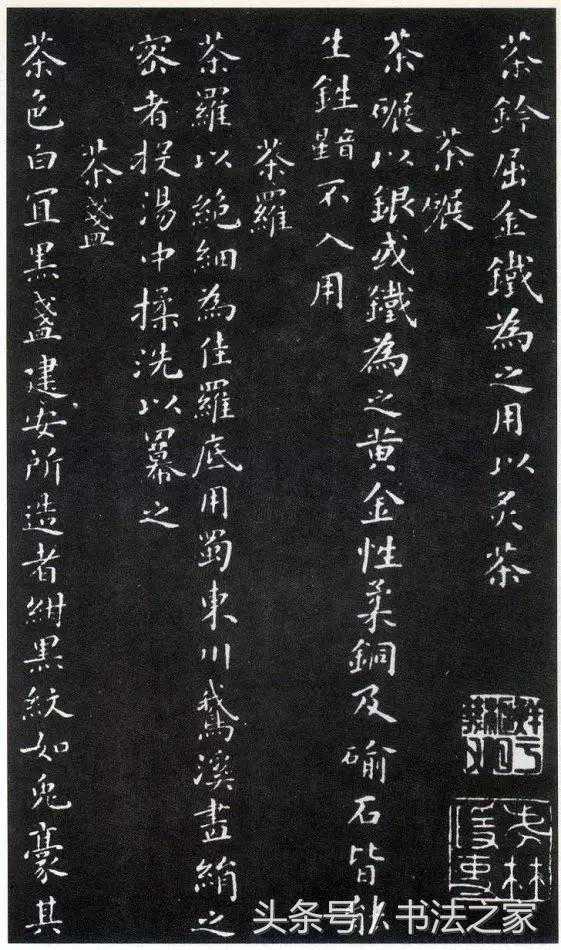 茶鈐屈金鐵為之用以炙茶
茶碾
茶碾以銀或鐵為之黄金性柔銅及碖石皆能
生鉎䵝不入用
茶羅
茶羅以絶細為佳羅底用蜀東川鵝溪畫絹之
密者投湯中揉洗以羃之
茶盞
茶色白宜黒盞建安所造者紺黒紋如兔豪其
头条号/书法之家